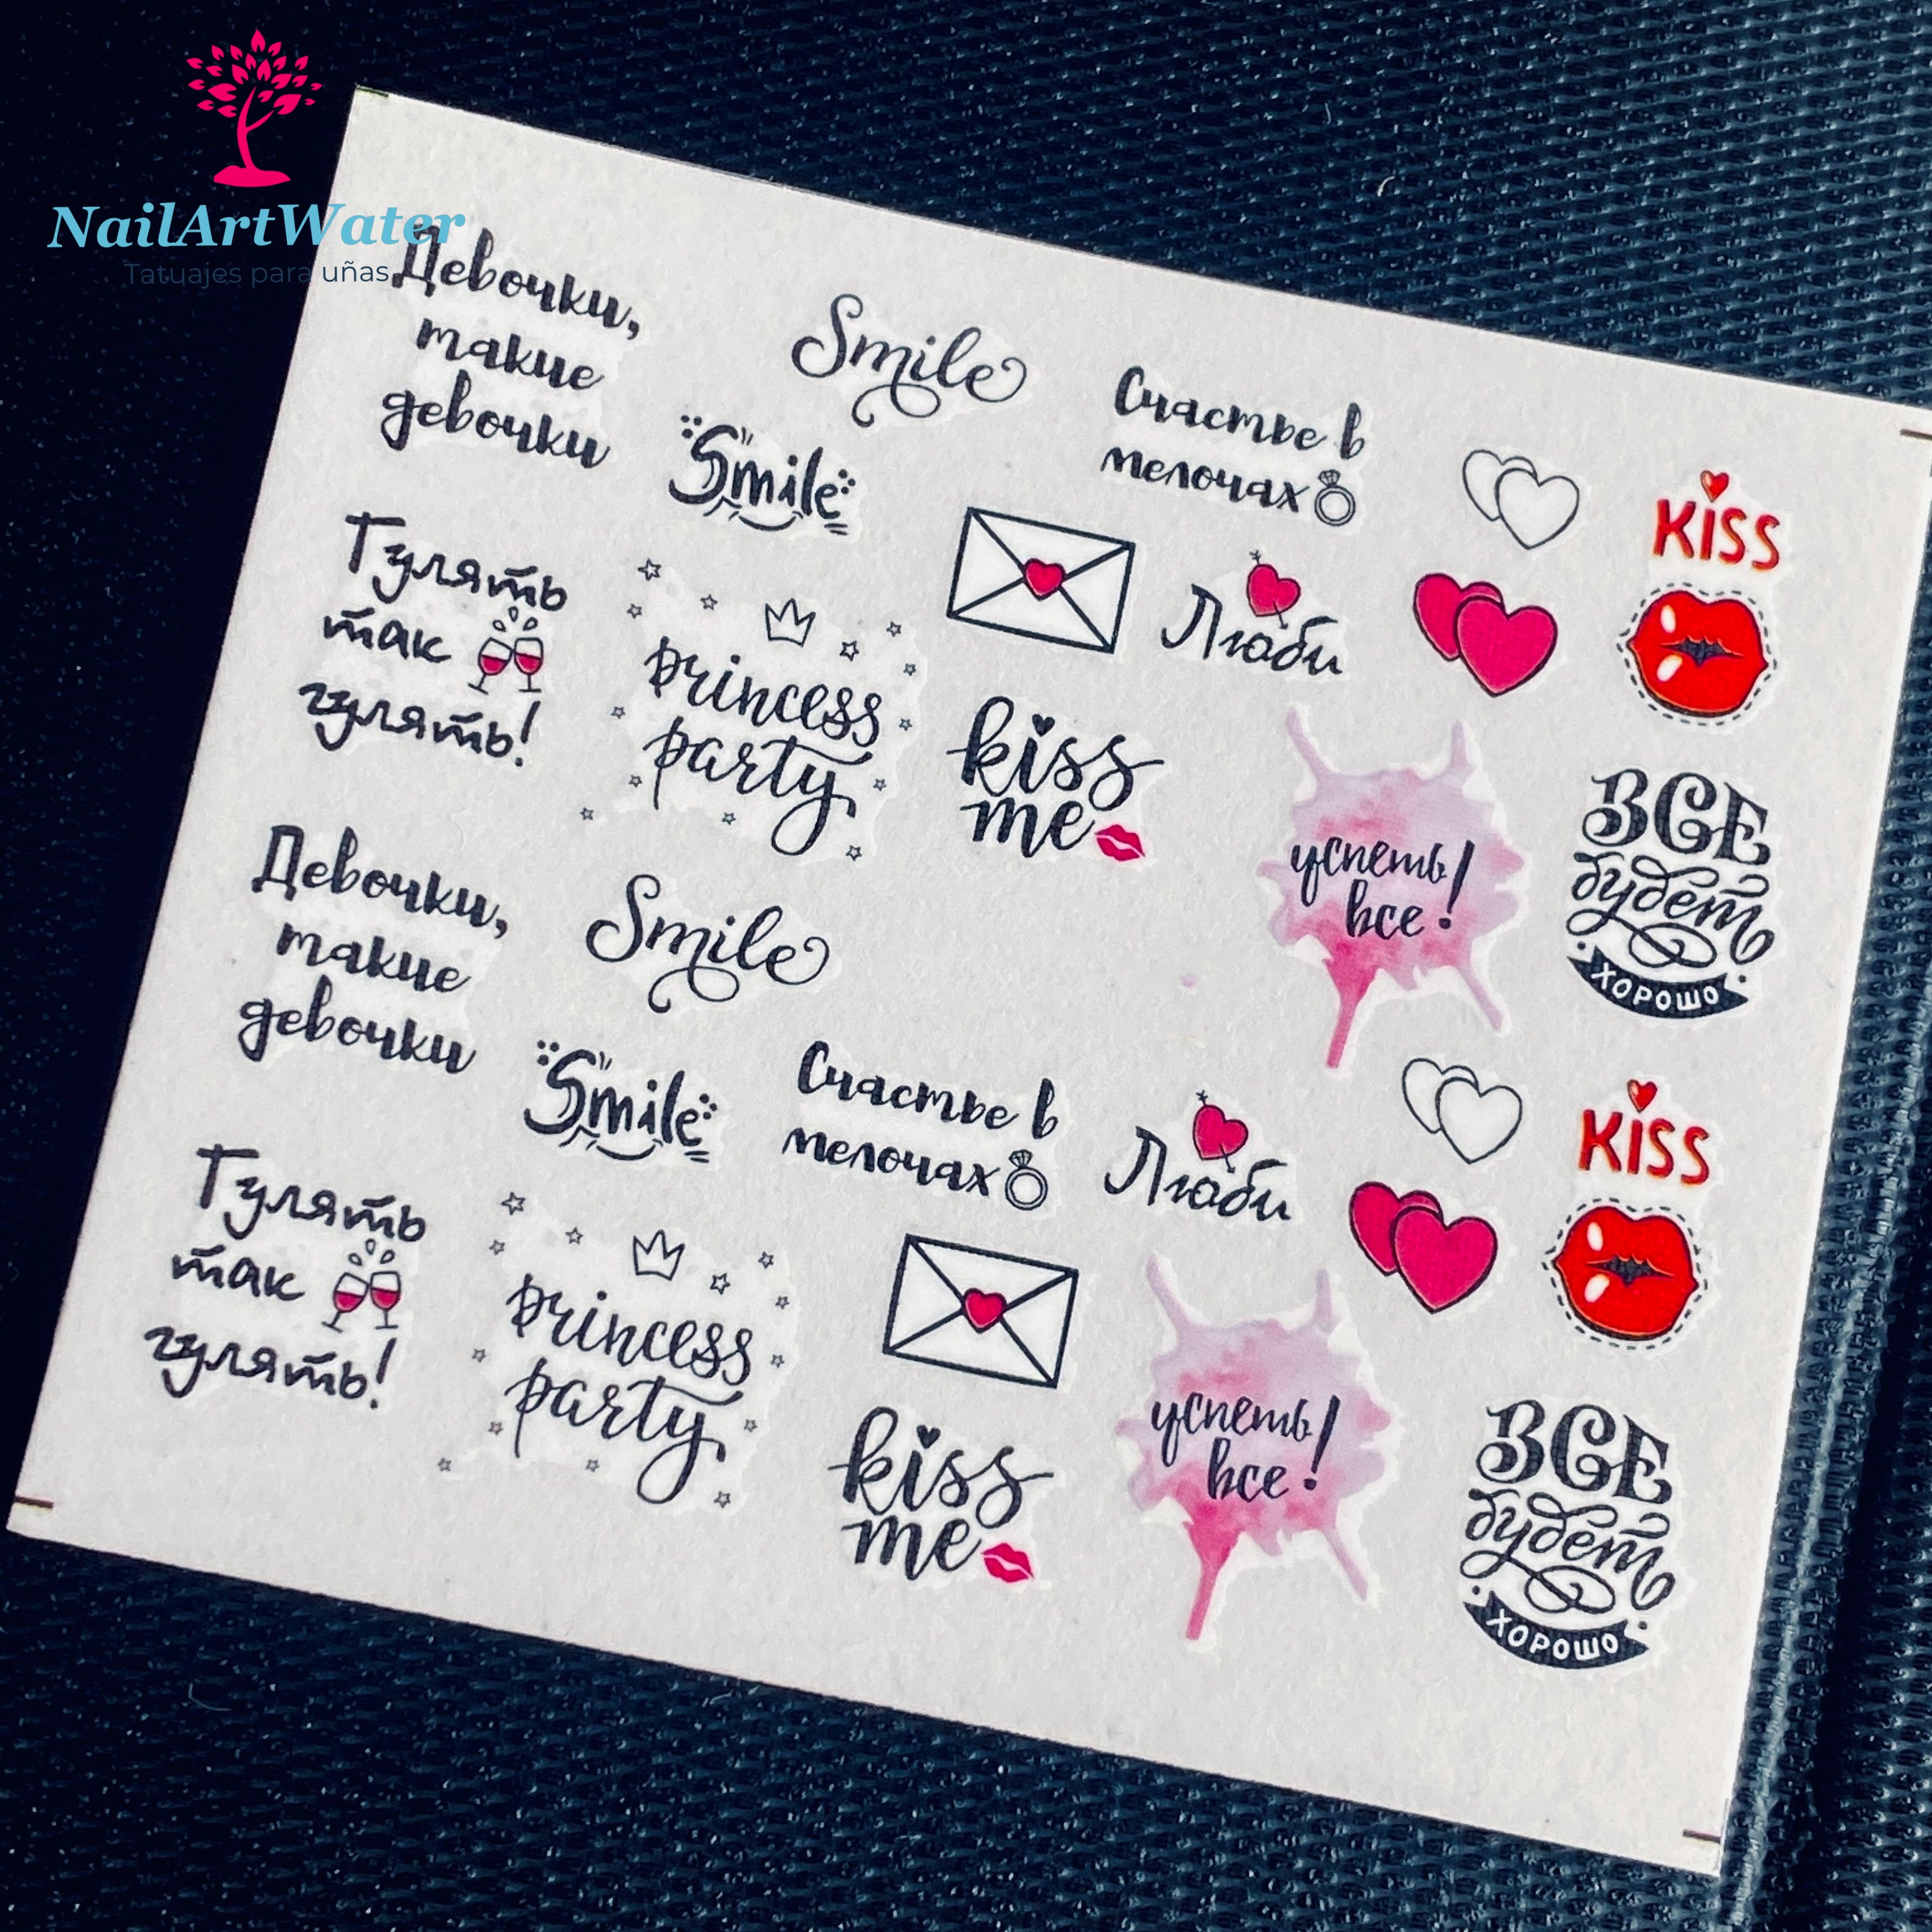 NailArtWater
Tatuajes para uñas
Девочки,
такие
девочки
Smile
Smile
Счастье в
мелочах
KISS
Гулять
так
гулять!
princess
party
Люби
kiss
me
успеть
все!
ВСЕ
будет
ХОРОШО
Девочки,
такие
девочки
Smile
Smile
Счастье в
мелочах
Люби
KISS
Гулять
так
гулять!
princess
party
kiss
me
успеть
все!
ВСЕ
будет
ХОРОШО